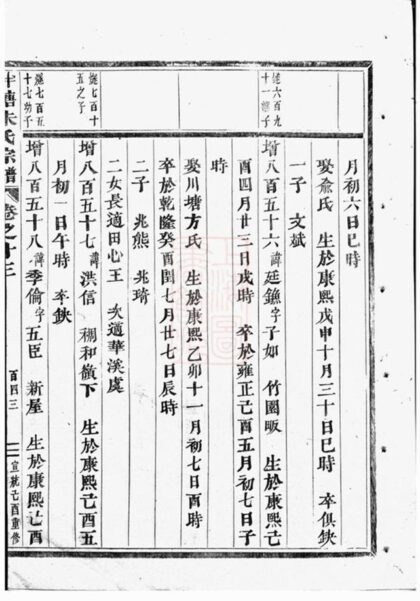 月初六日巳時
娶俞氏 生於康熙戊申十月三十日巳時 卒俱缺
一子 文斌
增八百五十六諱廷鐮字子如 竹園畈 生於康熙己
酉四月廿三日戌時 卒於雍正己酉五月初七日子
時
娶川塘方氏 生於康熙乙卯十一月初七日酉時
卒於乾隆癸酉閏七月廿七日辰時
二子 兆熊 兆琦
二女長適田心王 次適華溪虞
增八百五十七諱洪信 棚和嶺下 生於康熙己酉五
月初一日午時 卒缺
增八百五十八諱季倫字五臣 新屋 生於康熙己酉
總六百九
十一繼子
總七百十
五之子
總七百五
十七幼子
塘朱氏宗譜 卷之十三 百四三 宣統己酉重修